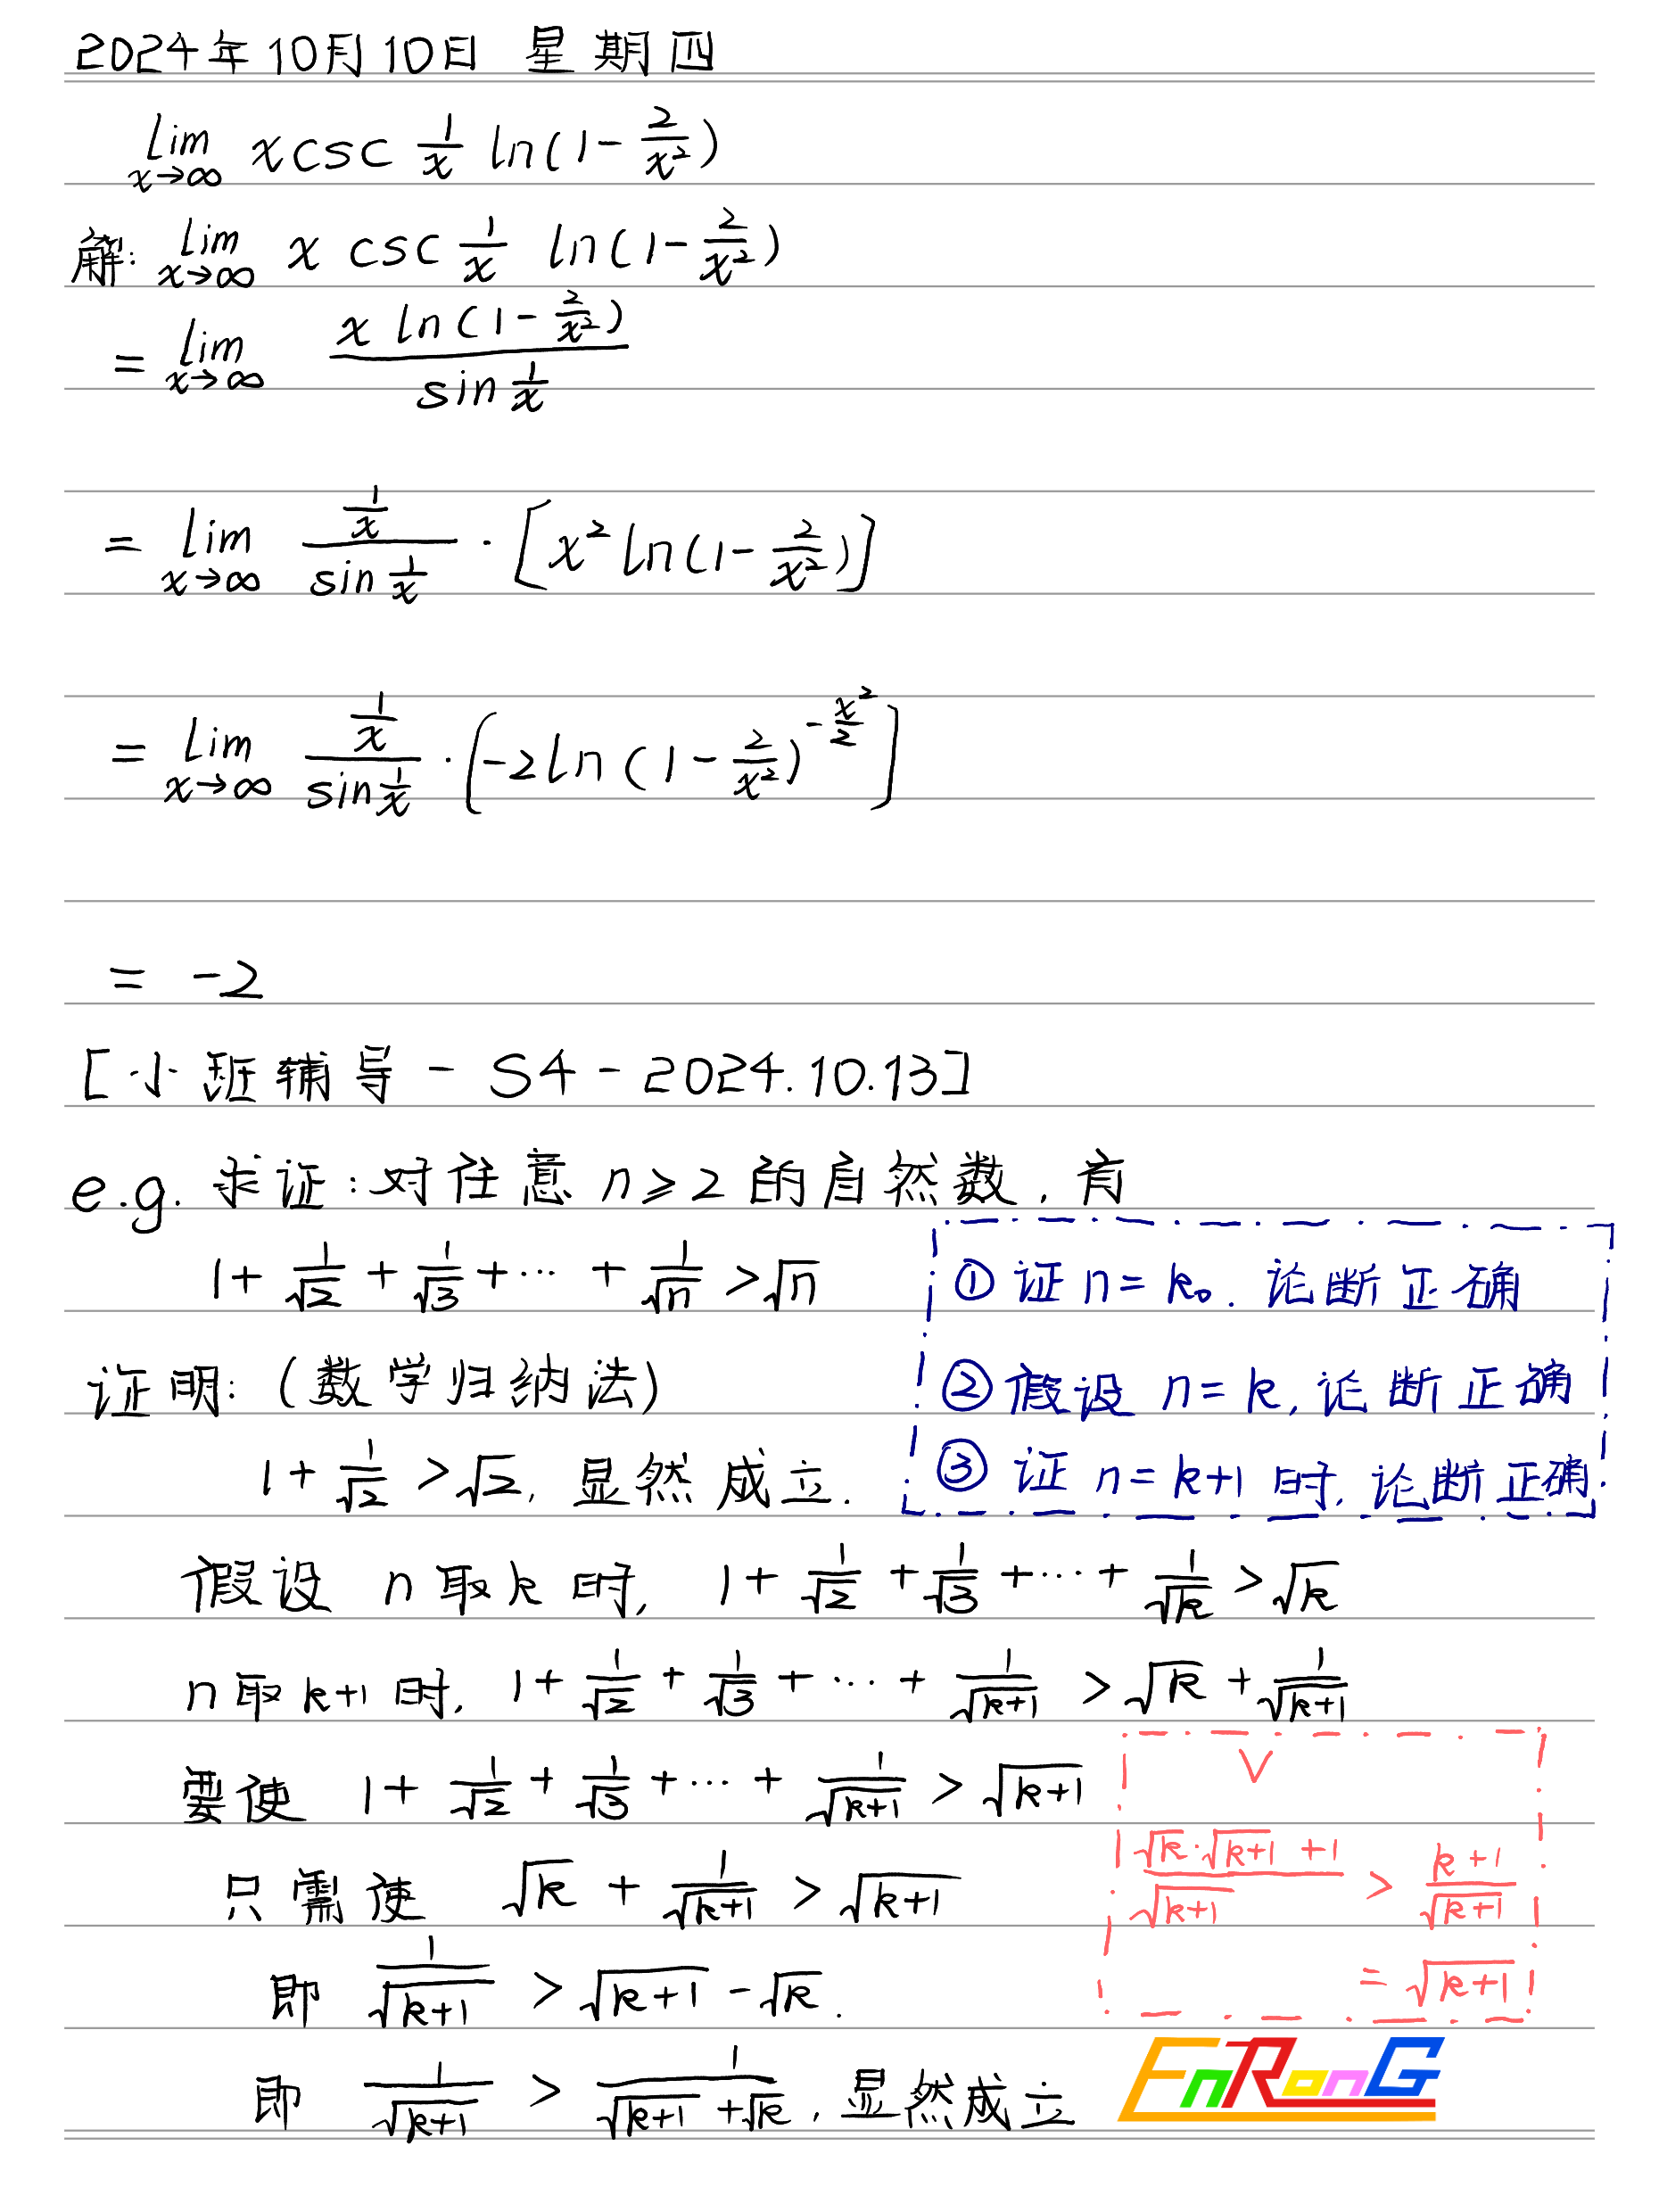 2024年10月10日 星期四
lim x→∞ x csc 1/x ln(1 - 2/x²)
解: lim x→∞ x csc 1/x ln(1 - 2/x²)
= lim x→∞ (x ln(1 - 2/x²))/(sin 1/x)
= lim x→∞ (1/x)/(sin 1/x) · [x² ln(1 - 2/x²)]
= lim x→∞ (1/x)/(sin 1/x) · [-2 ln(1 - 2/x²)^(-x²/2)]
= -2
[小班辅导 - S4 - 2024.10.13]
e.g. 求证:对任意 n≥2 的自然数, 有
1 + 1/√2 + 1/√3 + ··· + 1/√n > √n
① 证 n = k₀. 论断正确
证明: (数学归纳法)
② 假设 n = k, 论断正确
1 + 1/√2 > √2, 显然成立.
③ 证 n = k+1 时, 论断正确.
假设 n 取 k 时, 1 + 1/√2 + 1/√3 + ··· + 1/√k > √k
n 取 k+1 时, 1 + 1/√2 + 1/√3 + ··· + 1/√(k+1) > √k + 1/√(k+1)
要使 1 + 1/√2 + 1/√3 + ··· + 1/√(k+1) > √(k+1)
∨
只需使 √k + 1/√(k+1) > √(k+1)
(√k·√(k+1) + 1)/√(k+1) > (k+1)/√(k+1)
= √(k+1)
即 1/√(k+1) > √(k+1) - √k.
即 1/√(k+1) > 1/(√(k+1) + √k), 显然成立
EnRonG